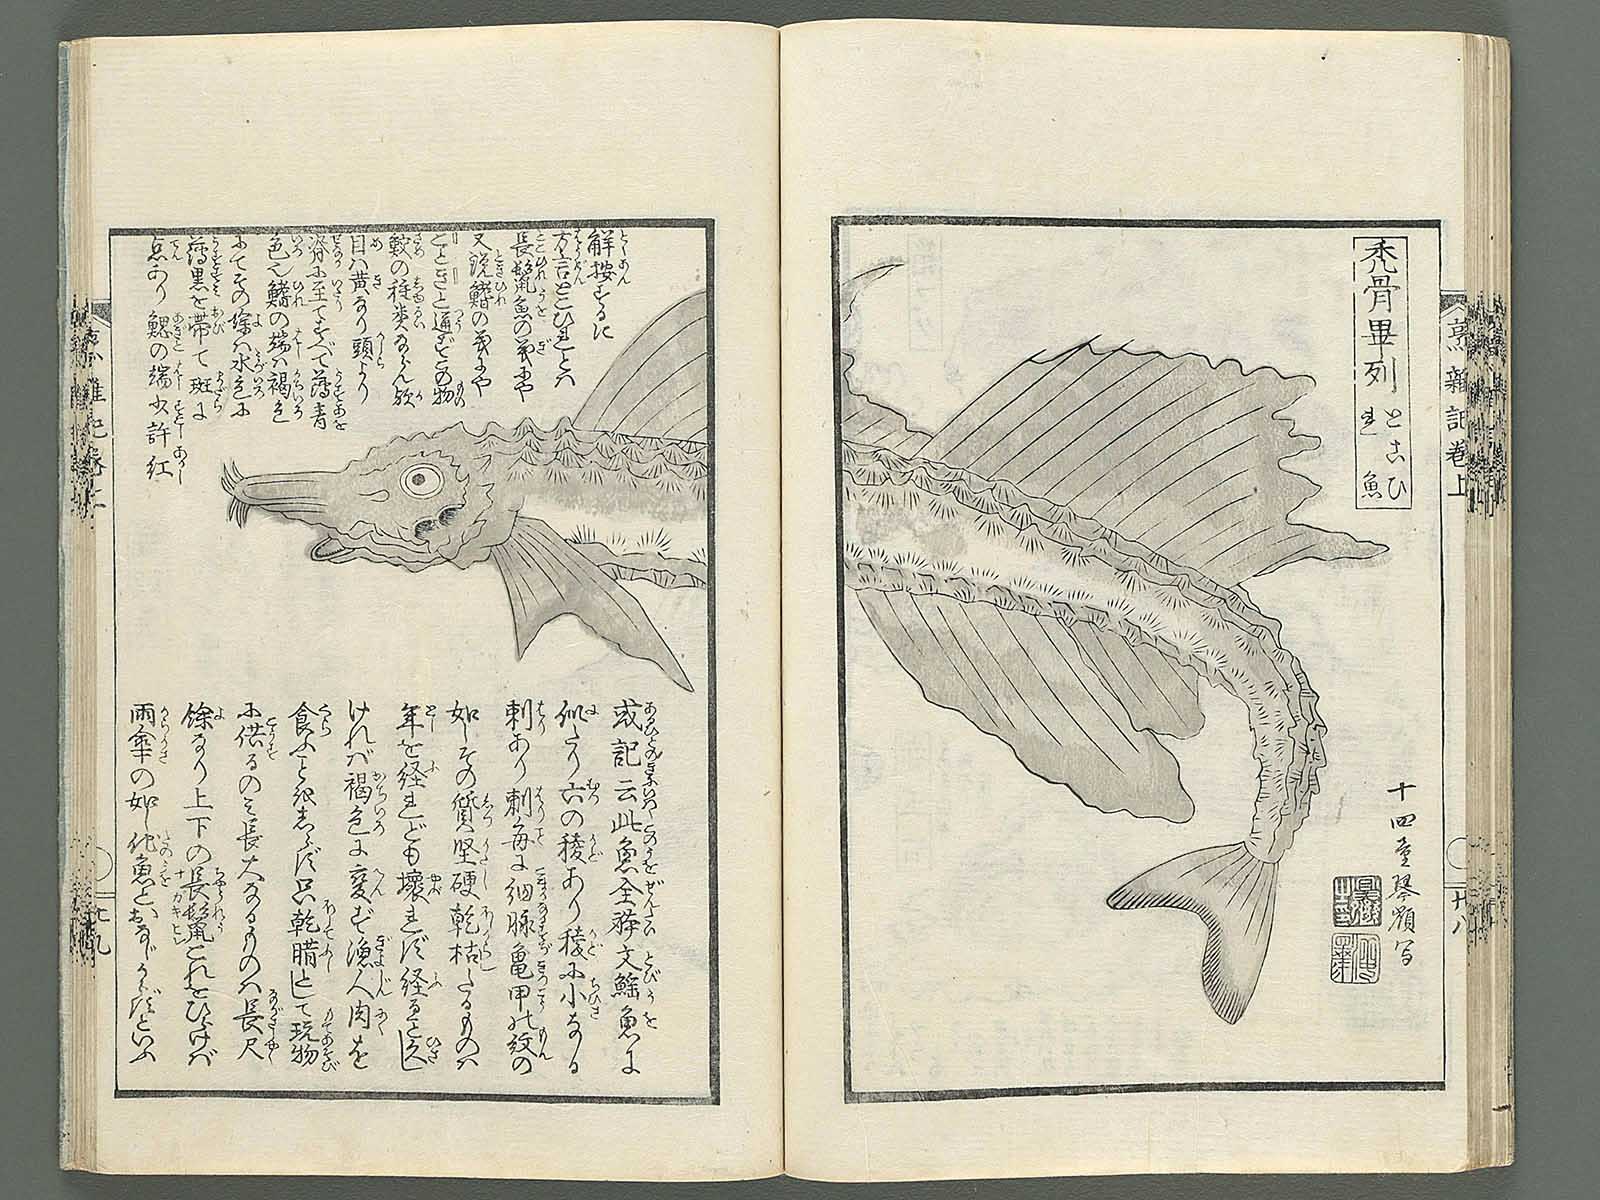 禿骨畢列
とこひ
れ魚
十四童琴嶺写
烹雑記巻上
廿八
解按ずるに
方言とこひれとハ
長鬣魚の義にや
又鋭鰭の義にや
こときと通ずこの物
鮫の種类ならん歟
目ハ黄なり頭より
脊に至てすべて薄青
色也鰭の端ハ褐色
にてその餘ハ水色に
薄黒を帯て斑に
点あり鰓の端少許紅
或記云此魚全躰文鰩魚に
似たり六の稜あり稜に小なる
刺あり刺毎に細脉亀甲の紋の
如しその質堅硬乾枯たるものハ
年を経れども壊れず経ること久し
ければ褐色に変ず漁人肉を
食ふことをしらず只乾腊として玩物
に供るのミ長大なるものハ長尺
餘なり上下の長鬣これをひらけバ
雨傘の如し他魚とおなじからずといふ
廿九